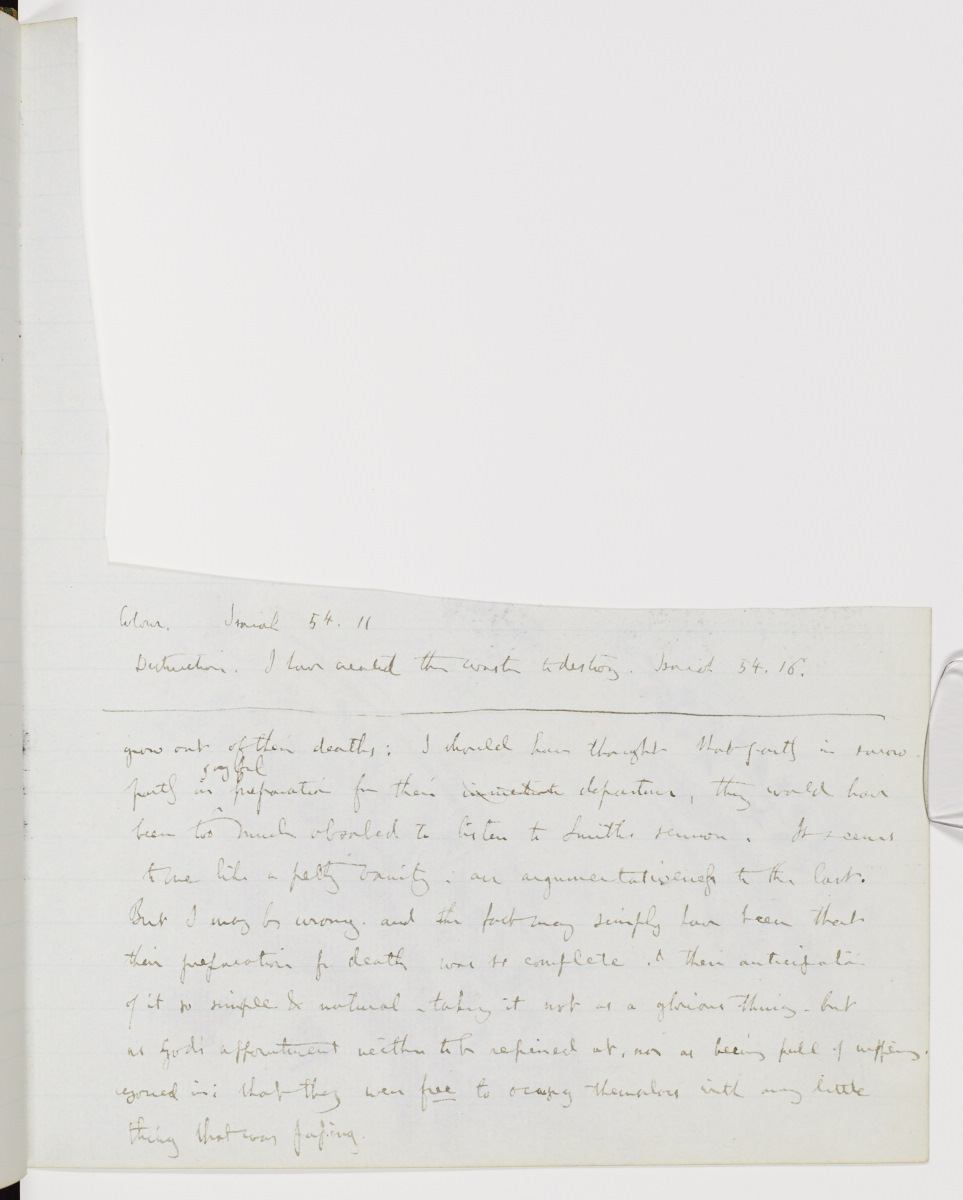 Colour. Isaiah 54. 11
Destruction. I have created the waster to destroy. Isaiah 54. 16.
grow out of their deaths; I should have thought that partly in sorrow
joyful
partly in preparation for their immediate departure, they would have
been too much absorbed to listen to Smiths sermon. It seems
to me like a petty vanity. an argumentativeness to the last.
But I may be wrong. and the fact may simply have been that
their preparation for death was so complete. & their anticipation
of it so simple & natural - taking it not as a glorious thing - but
as Gods appointment neither to be repined at, nor as being full of suffering.
rejoiced in: that they were free to occupy themselves with any little
thing that was passing.